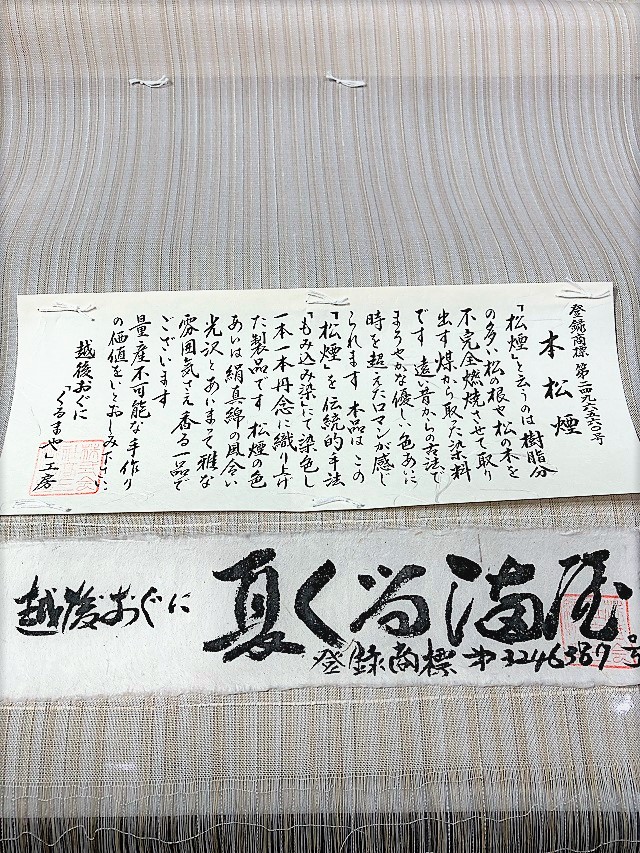 登録商標 第二四九六五六〇号
本松煙
「松煙」と云うのは樹脂分
の多い松の根や松の木を
不完全燃焼させて取り
出す煤から取った染料
です 遠い昔からの古法で
まろやかな優しい色あいに
時を超えたロマンが感じ
られます 本品は この
「松煙」を伝統的手法
「もみ込み染」にて染色し
一本一本丹念に織り上げ
た製品です 松煙の色
あいは絹真綿の風合い
光沢とあいまって雅な
雰囲気さえ香る一品で
ございます
量産不可能な手作り
の価値をいとおしみ下さい
越後おぐに
「くるまや」工房
越後おぐに
夏くるま屋
登録商標 第3246387号